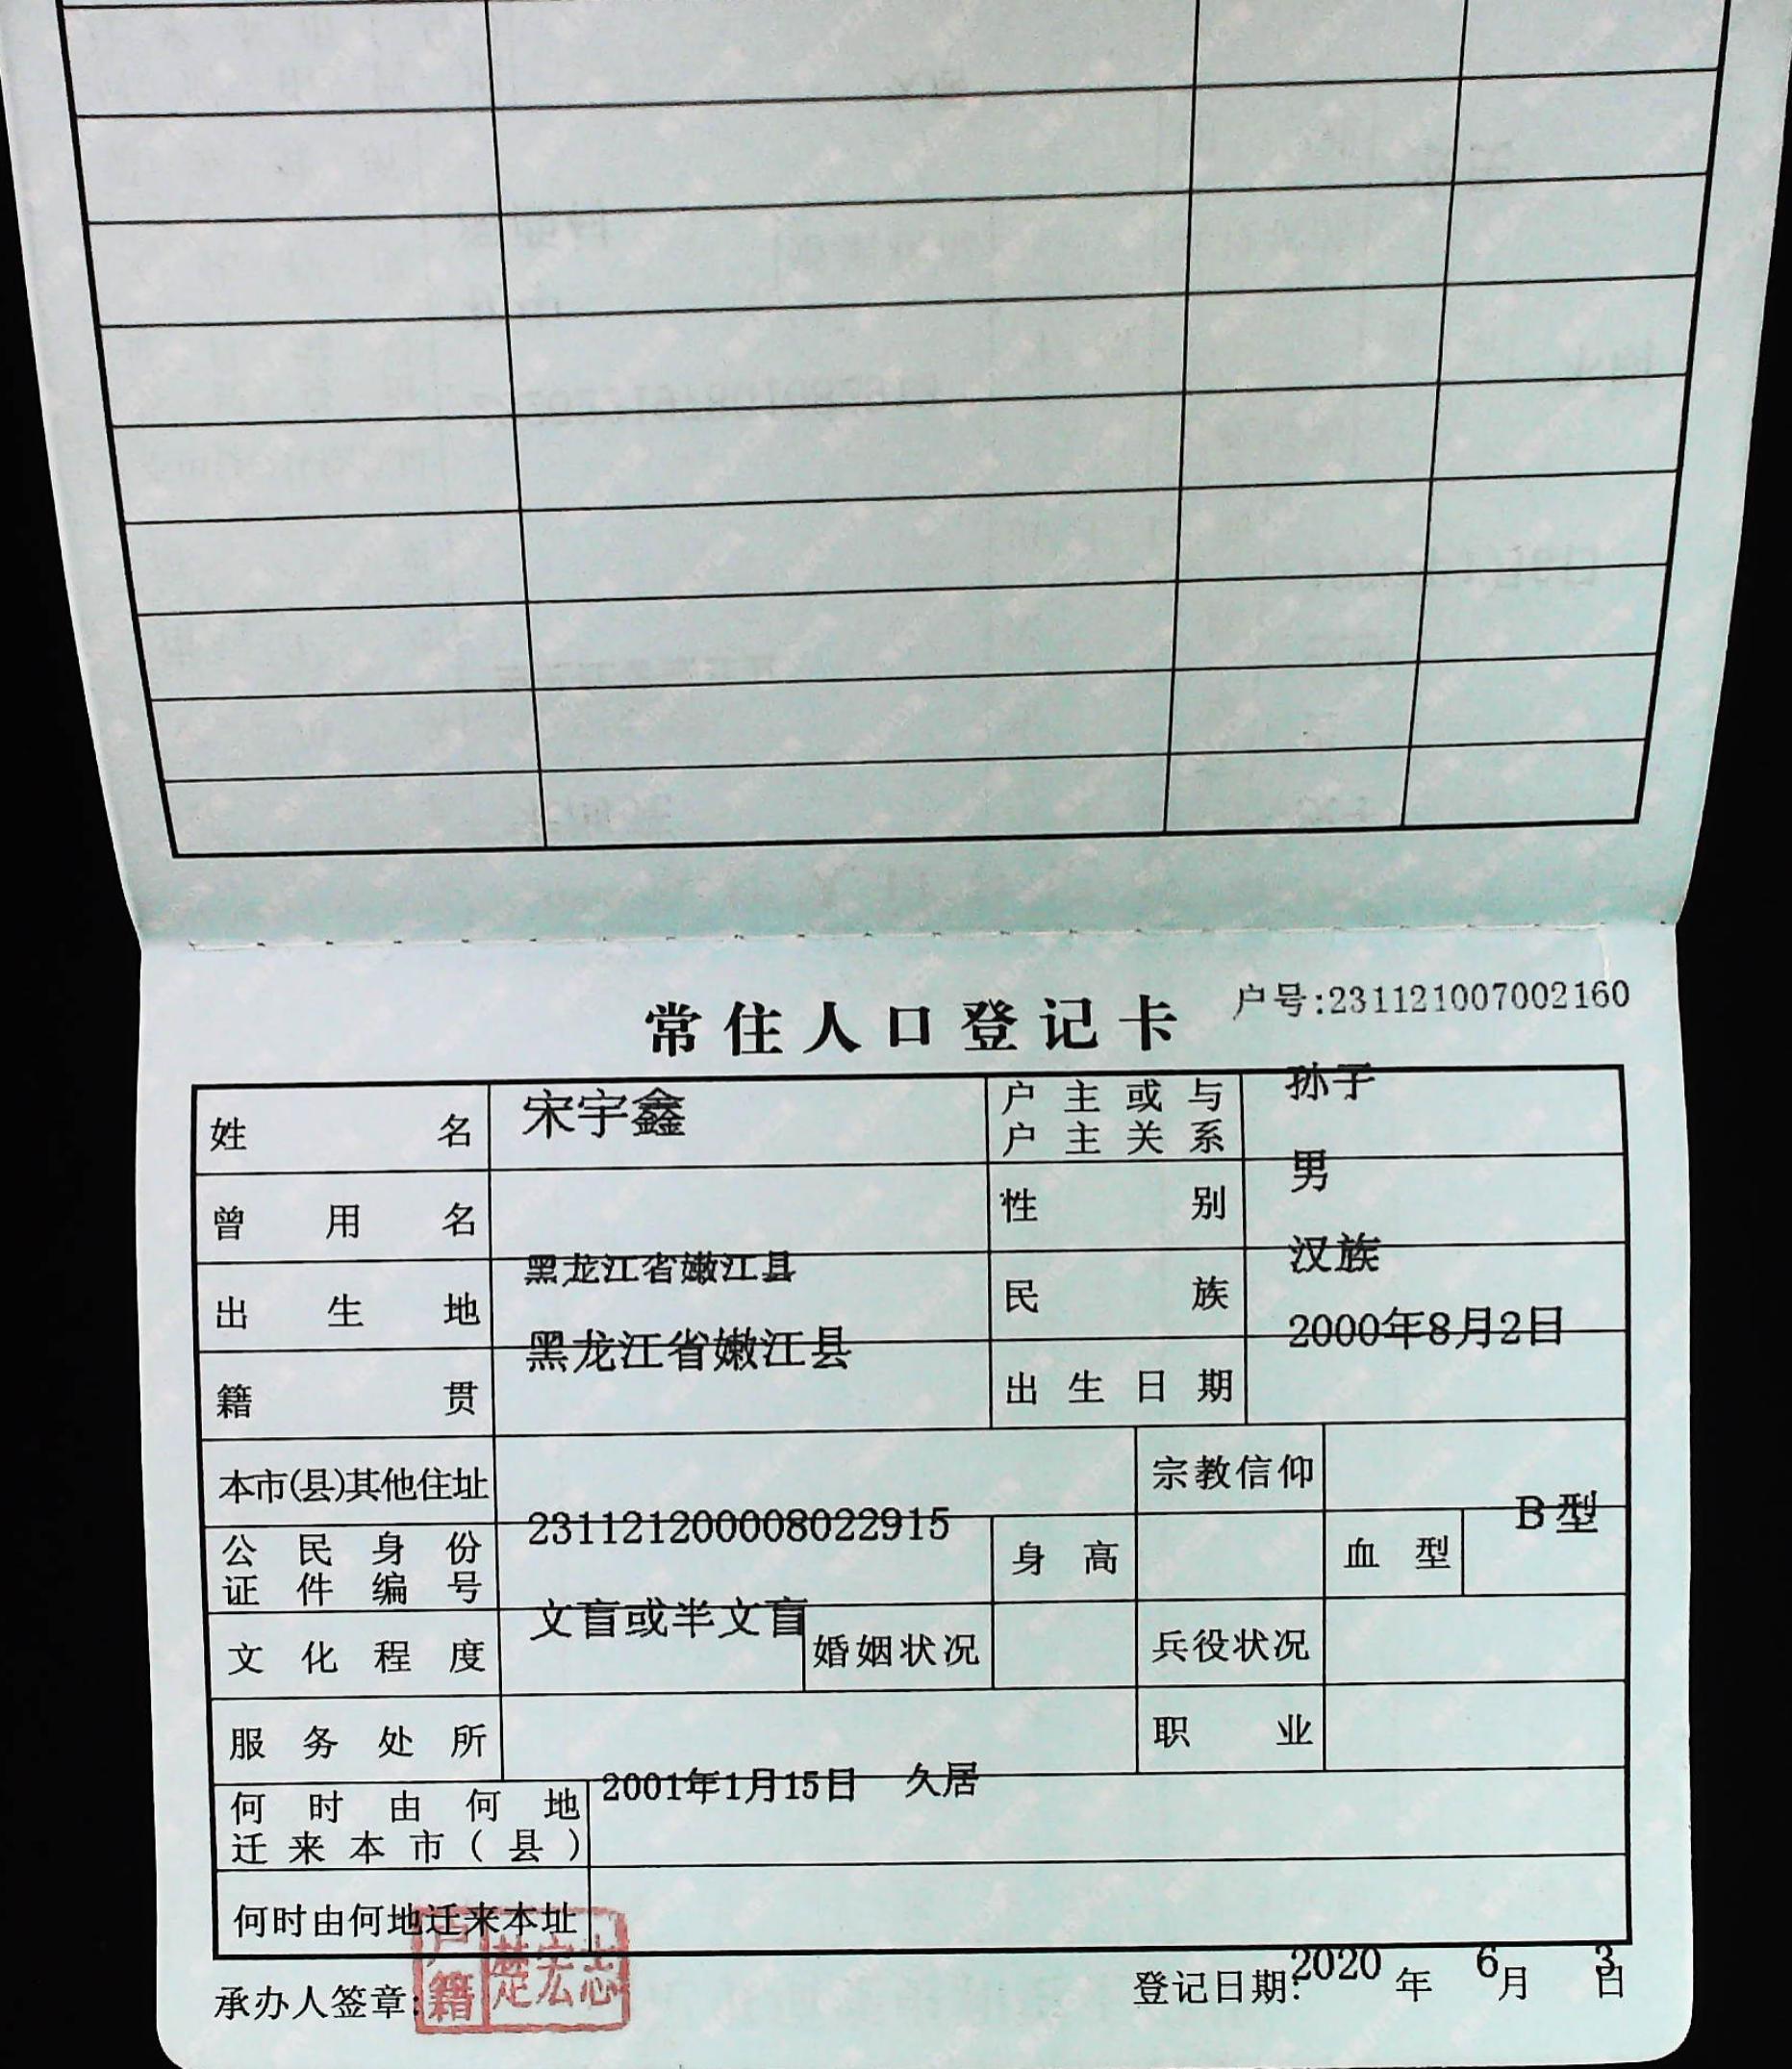 常住人口登记卡 户号:231121007002160
姓名 宋宇鑫 户主或与户主关系 孙子
曾用名 性别 男
出生地 黑龙江省嫩江县 民族 汉族
籍贯 黑龙江省嫩江县 出生日期 2000年8月2日
本市(县)其他住址 宗教信仰
公民身份证件编号 231121200008022915 身高 血型 B型
文化程度 文盲或半文盲 婚姻状况 兵役状况
服务处所 职业
何时由何地迁来本市(县) 2001年1月15日 久居
何时由何地迁来本址
承办人签章: 户籍 楚宏志 登记日期: 2020年6月3日